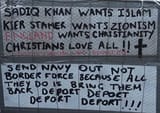 SADIQ KHAN WANTS ISLAM
KIER STAMER WANTS ZIONISM
ENGLAND WANTS CHRISTIANITY
CHRISTIANS LOVE ALL !!
SEND NAVY OUT NOT
BORDER FORCE BECAUSE ALL
THEY DO IS BRING THEM
BACK DEPORT DEPORT
DEPORT DEPORT !!!